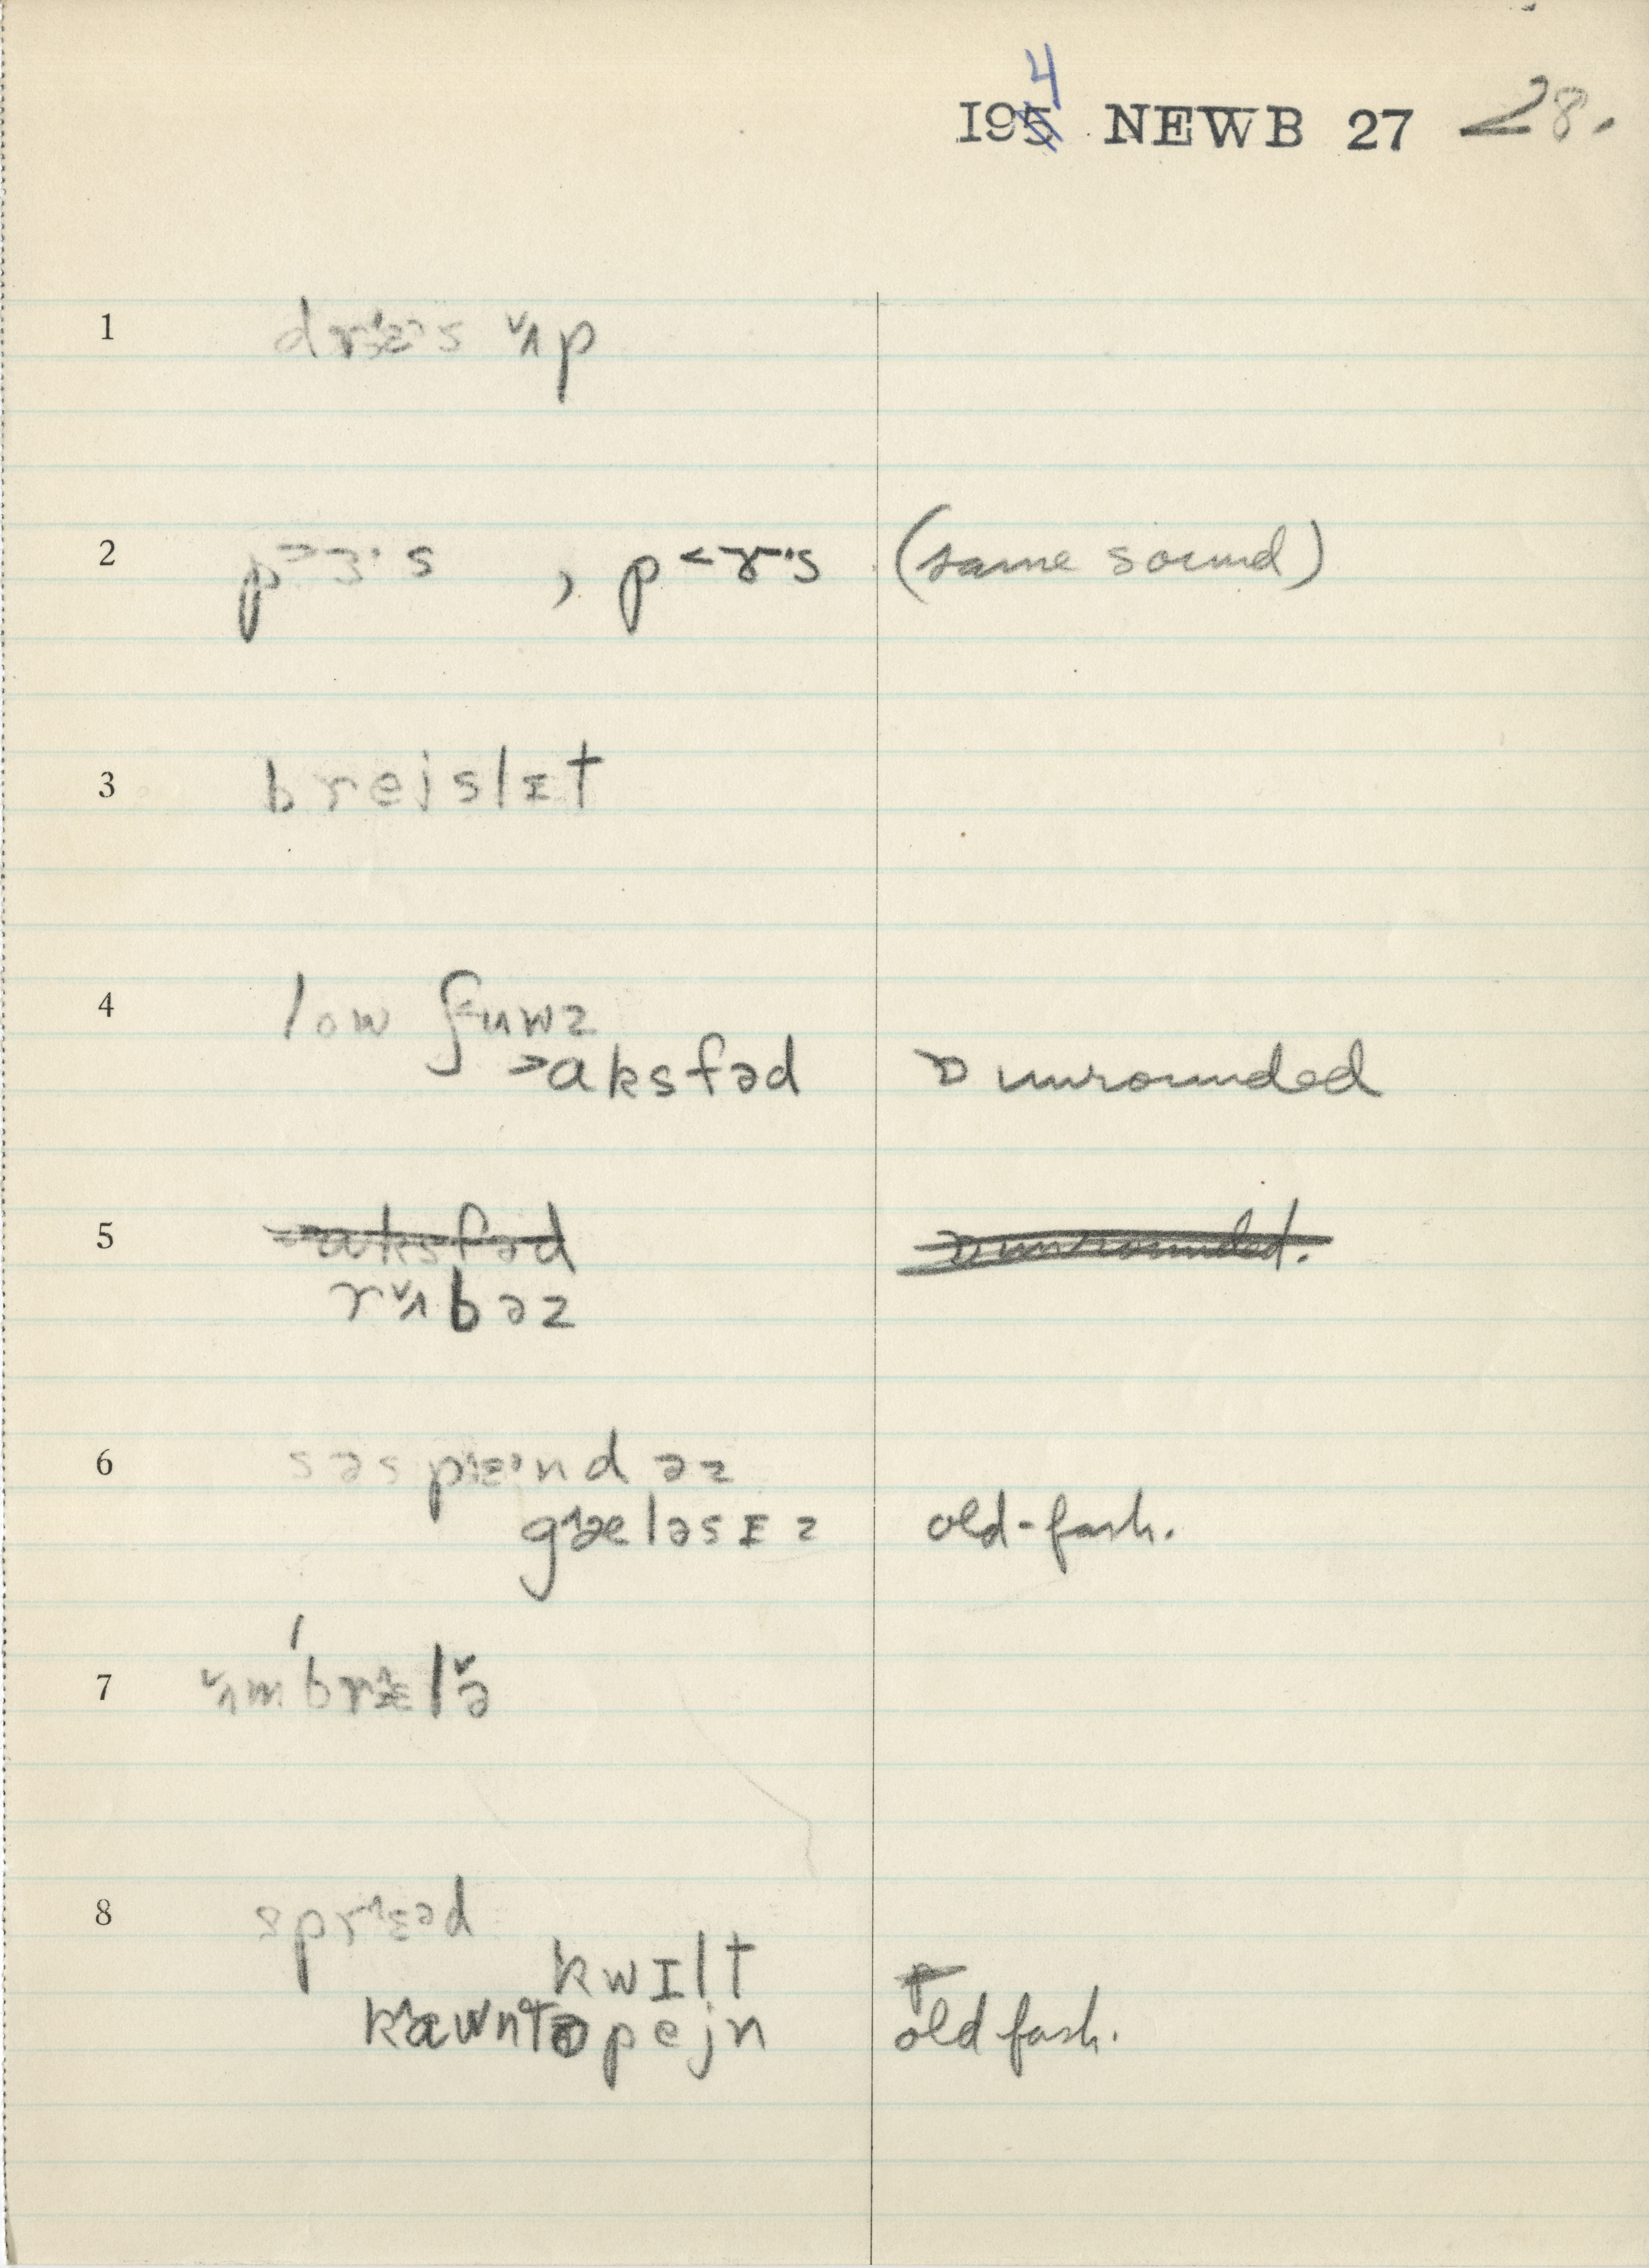 1954 NEWB 27 28.
1 drɛˑs ʌp
2 p>ɜˑs , p<ɤˑs (same sound)
3 brejslɪt
4 low ʃuwz
>aksfəd ɒ unrounded
5 aksfəd ɒ unrounded.
rʌbəz
6 səspɛˑndəz
gæləsɪz old-fash.
7 ʌmbrɛlə
8 sprɛəd
kwɪlt
kawntəpejn old fash.